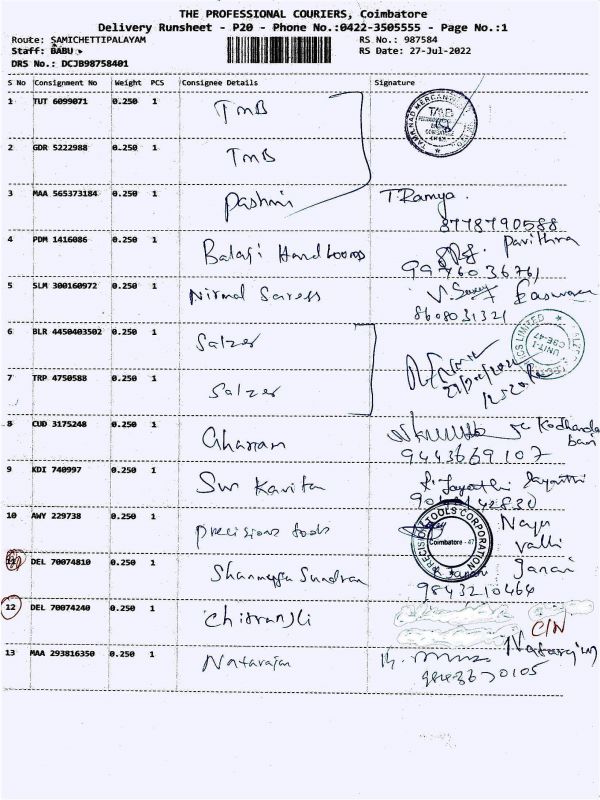 THE PROFESSIONAL COURIERS, Coimbatore
Delivery Runsheet - P20 - Phone No.:0422-3505555 - Page No.:1
Route: SAMICHETTIPALAYAM RS No.: 987584
Staff: BABU RS Date: 27-Jul-2022
DRS No.: DCJB98758401
S No Consignment No Weight PCS Consignee Details Signature
1 TUT 6099071 0.250 1 TmB
2 GDR 5222988 0.250 1 TmB
3 MAA 565373184 0.250 1 Pashmi T. Ramya
8778790588
4 PDM 1416086 0.250 1 Balaji Handlooms Pavithra
9976036761
5 SLM 300160972 0.250 1 Nirmal Sarees Easwaran
8608031321
6 BLR 4450403502 0.250 1 Salzer
UNIT-1
CBE-47
7 TRP 4750588 0.250 1 Salzer
8 CUD 3175248 0.250 1 Kodhanda
9443669107
9 KDI 740997 0.250 1 Sur Kavita Jayanthi
10 AWY 229738 0.250 1 Precisions tools Naga
Valli
PRECISION TOOLS CORPORATION
Coimbatore - 47
11 DEL 70074810 0.250 1 Shanmuga Sundram Janani
9843210464
12 DEL 70074240 0.250 1 C/N
13 MAA 293816350 0.250 1 Natarajan Natarajan